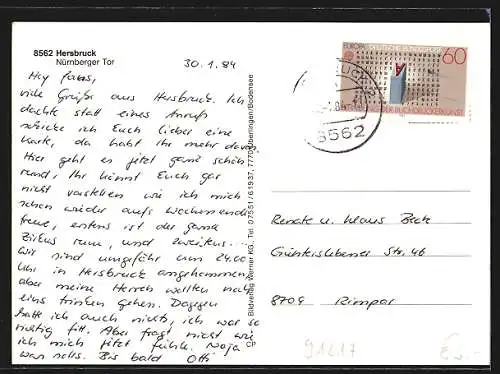 8562 Hersbruck
Nürnberger Tor
30.1.84
Hey fans,
viele Grüße aus Hersbruck. Ich
dachte statt eines Anrufs
schicke ich Euch lieber eine
Karte, da habt Ihr mehr davon.
Hier geht es jetzt ganz schön
rund, Ihr könnt Euch gar
nicht vorstellen wie ich mich
schon wieder aufs Wochenende
freue, erstens ist der ganze
Zirkus rum, und zweitens...
Wir sind ungefähr um 24.00
Uhr in Hersbruck angekommen,
aber meine Herren wollten noch
eins trinken gehen. Dagegen
hatte ich auch nichts, ich war so
richtig fit. Aber fragt nicht wie
ich mich jetzt fühle. Naja
was solls. Bis bald Otti
Bildverlag Werner KG, Tel. 07551/61937, 7770 Überlingen/Bodensee
CP
EUROPA DEUTSCHE BUNDESPOST
60
DER BUCHDRUCKERKUNST
8562
Renate u. Klaus Beck
Günterslebener Str. 46
8709 Rimpar
91217